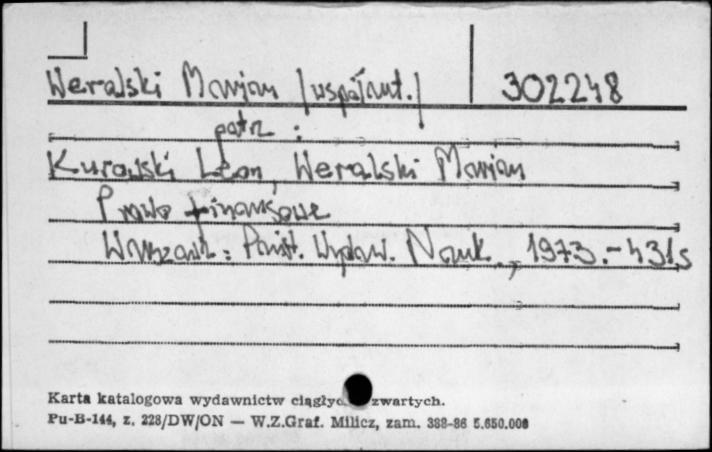 Weralski Marian /współaut./ 302248
patrz :
Kurowski Leon, Weralski Marian
Prawo finansowe
Warszawa : Państ. Wydaw. Nauk., 1973. - 431s
Karta katalogowa wydawnictw ciągłyc zwartych.
Pu-B-144, z. 228/DW/ON — W.Z.Graf. Milicz, zam. 388-86 5.650.000